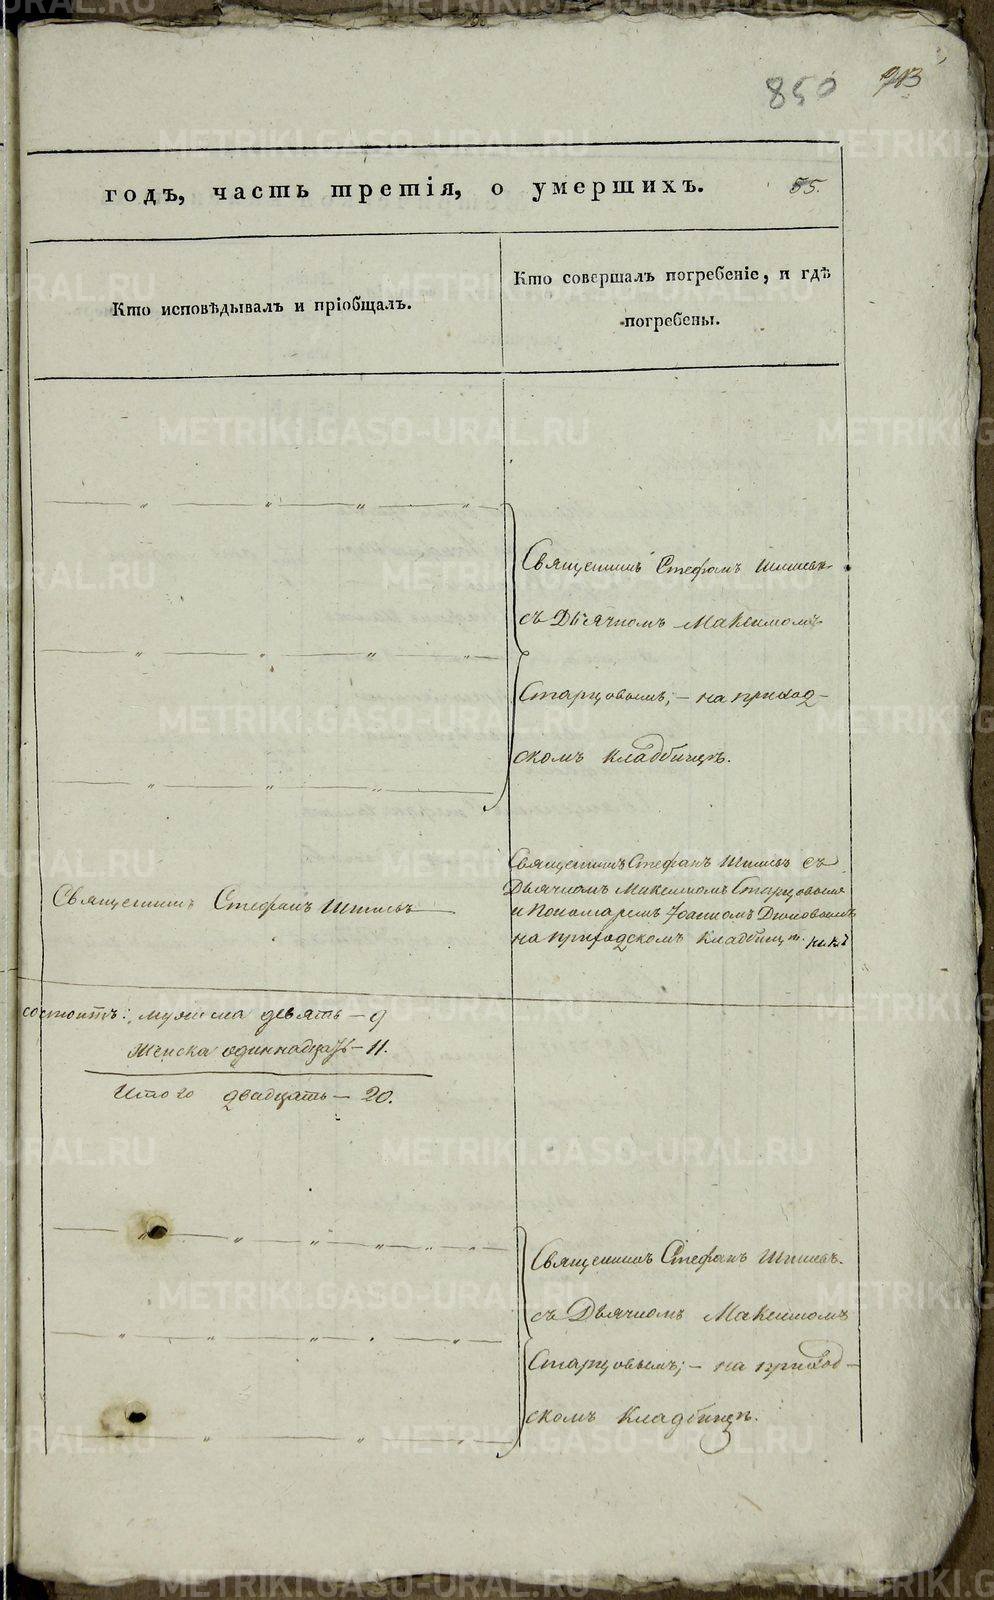 850
годъ, часть третія, о умершихъ.
55.
Кто исповѣдывалъ и пріобщалъ.
Кто совершалъ погребеніе, и гдѣ
погребены.
Священникъ Стефанъ
съ Дьячкомъ Максимомъ
Старцовымъ; — на приход-
скомъ кладбищѣ.
Священникъ Стефанъ
Священникъ Стефанъ съ
Дьячкомъ Максимомъ Старцовымъ
и Пономаремъ Іоанномъ
на приходскомъ кладбищѣ.
состоитъ: мужеска девять — 9
женска одиннадцать — 11.
Итого двадцать — 20.
Священникъ Стефанъ
съ Дьячкомъ Максимомъ
Старцовымъ; — на приход-
скомъ кладбищѣ.
METRIKI.GASO-URAL.RU